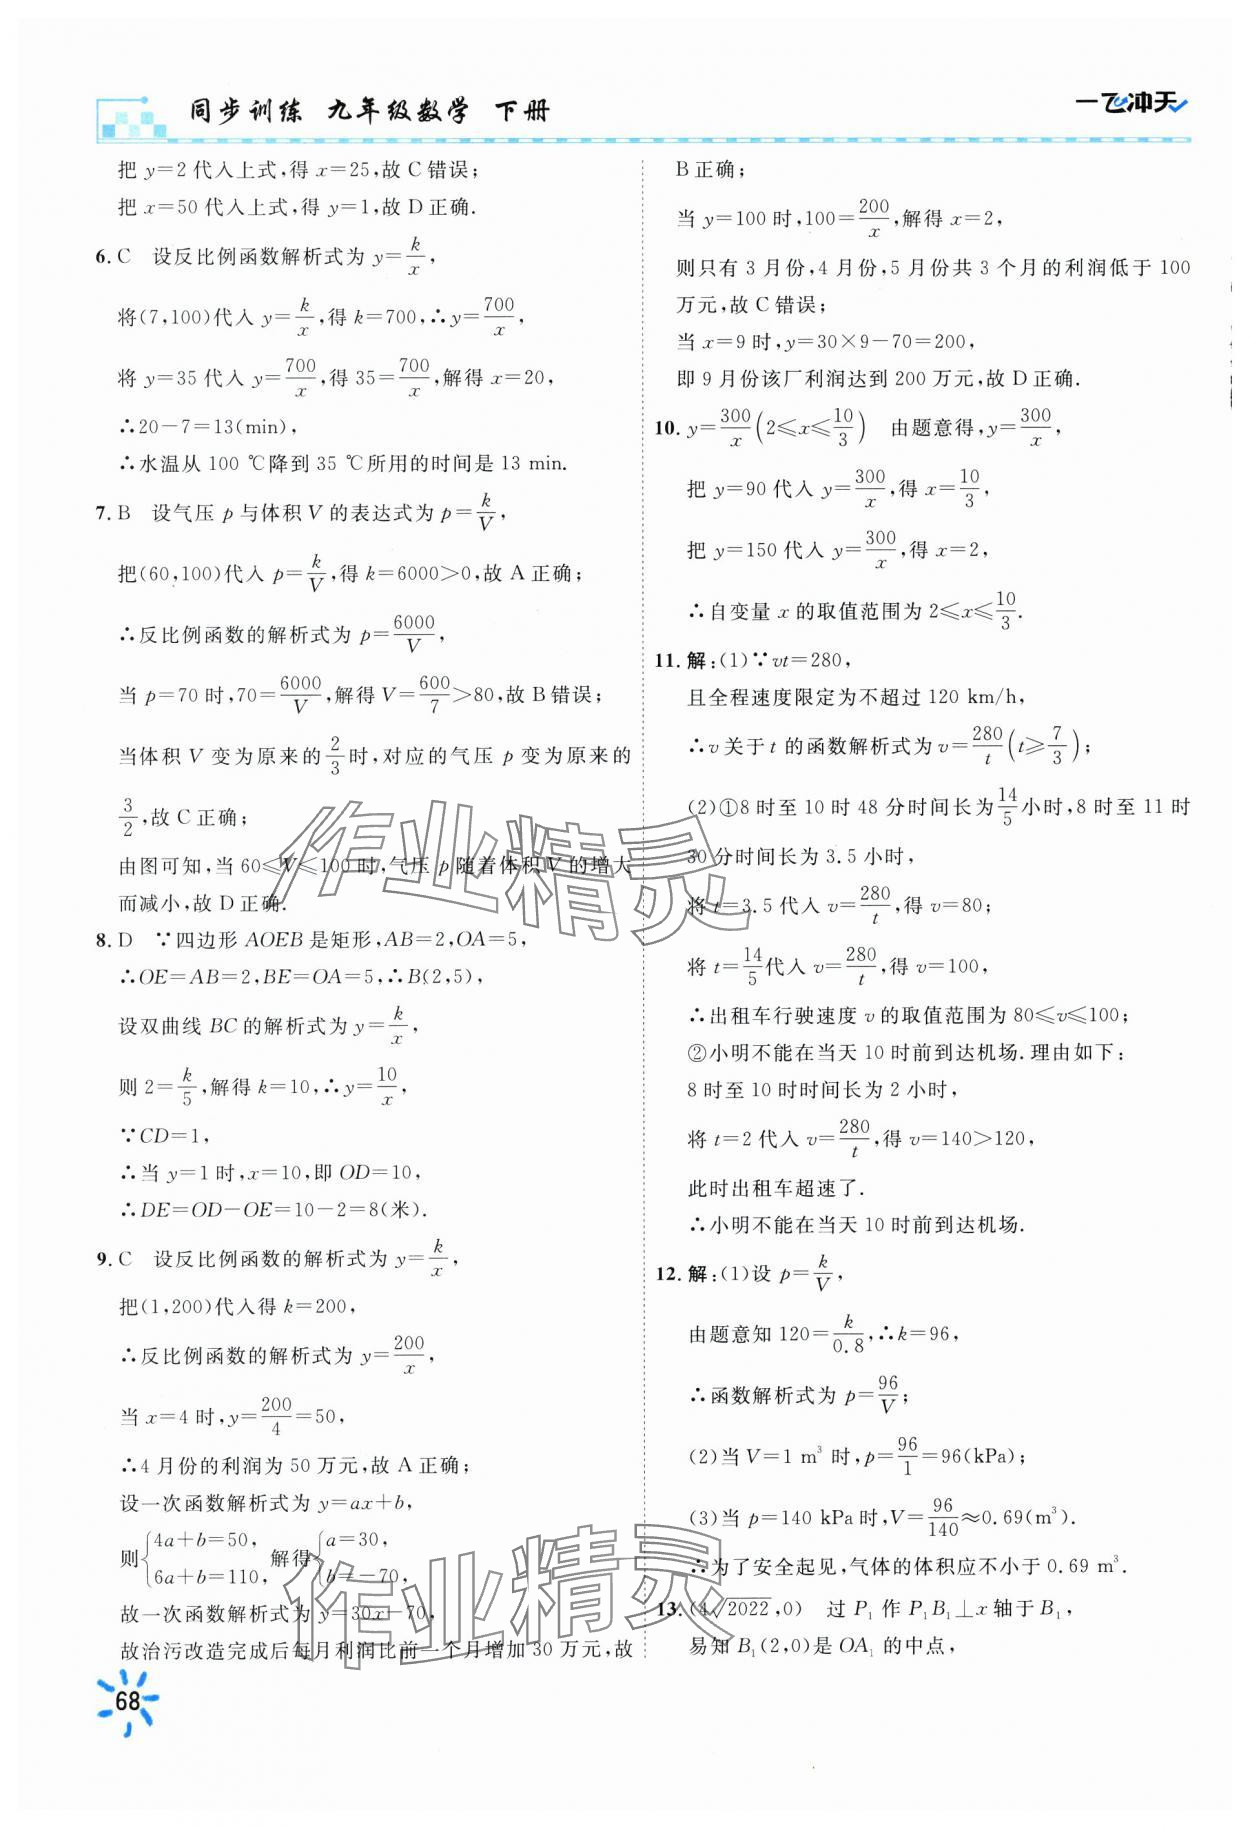 同步训练 九年级数学 下册
一飞冲天
把 y=2 代入上式,得 x=25,故 C 错误;
把 x=50 代入上式,得 y=1,故 D 正确.
6. C 设反比例函数解析式为 y=k/x,
将(7,100)代入 y=k/x,得 k=700,∴y=700/x,
将 y=35 代入 y=700/x,得 35=700/x,解得 x=20,
∴20-7=13(min),
∴水温从 100 ℃降到 35 ℃所用的时间是 13 min.
7. B 设气压 p 与体积 V 的表达式为 p=k/V,
把(60,100)代入 p=k/V,得 k=6000>0,故 A 正确;
∴反比例函数的解析式为 p=6000/V,
当 p=70 时,70=6000/V,解得 V=600/7>80,故 B 错误;
当体积 V 变为原来的 2/3 时,对应的气压 p 变为原来的
3/2,故 C 正确;
由图可知,当 60≤V≤100 时,气压 p 随着体积 V 的增大
而减小,故 D 正确.
8. D ∵四边形 AOEB 是矩形,AB=2,OA=5,
∴OE=AB=2,BE=OA=5,∴B(2,5),
设双曲线 BC 的解析式为 y=k/x,
则 2=k/5,解得 k=10,∴y=10/x,
∵CD=1,
∴当 y=1 时,x=10,即 OD=10,
∴DE=OD-OE=10-2=8(米).
9. C 设反比例函数的解析式为 y=k/x,
把(1,200)代入得 k=200,
∴反比例函数的解析式为 y=200/x,
当 x=4 时,y=200/4=50,
∴4 月份的利润为 50 万元,故 A 正确;
设一次函数解析式为 y=ax+b,
则{4a+b=50, 6a+b=110, 解得{a=30, b=-70,
故一次函数解析式为 y=30x-70,
故治污改造完成后每月利润比前一个月增加 30 万元,故
B 正确;
当 y=100 时,100=200/x,解得 x=2,
则只有 3 月份,4 月份,5 月份共 3 个月的利润低于 100
万元,故 C 错误;
当 x=9 时,y=30×9-70=200,
即 9 月份该厂利润达到 200 万元,故 D 正确.
10. y=300/x(2≤x≤10/3) 由题意得,y=300/x,
把 y=90 代入 y=300/x,得 x=10/3,
把 y=150 代入 y=300/x,得 x=2,
∴自变量 x 的取值范围为 2≤x≤10/3.
11. 解:(1)∵vt=280,
且全程速度限定为不超过 120 km/h,
∴v 关于 t 的函数解析式为 v=280/t(t≥7/3);
(2)①8 时至 10 时 48 分时间长为 14/5 小时,8 时至 11 时
30 分时间长为 3.5 小时,
将 t=3.5 代入 v=280/t,得 v=80;
将 t=14/5 代入 v=280/t,得 v=100,
∴出租车行驶速度 v 的取值范围为 80≤v≤100;
②小明不能在当天 10 时前到达机场. 理由如下:
8 时至 10 时时间长为 2 小时,
将 t=2 代入 v=280/t,得 v=140>120,
此时出租车超速了.
∴小明不能在当天 10 时前到达机场.
12. 解:(1)设 p=k/V,
由题意知 120=k/0.8,∴k=96,
∴函数解析式为 p=96/V;
(2)当 V=1 m³ 时,p=96/1=96(kPa);
(3)当 p=140 kPa 时,V=96/140≈0.69(m³).
∴为了安全起见,气体的体积应不小于 0.69 m³.
13. (4√2022,0) 过 P₁ 作 P₁B₁⊥x 轴于 B₁,
易知 B₁(2,0)是 OA₁ 的中点,
68
作业精灵
作业精灵